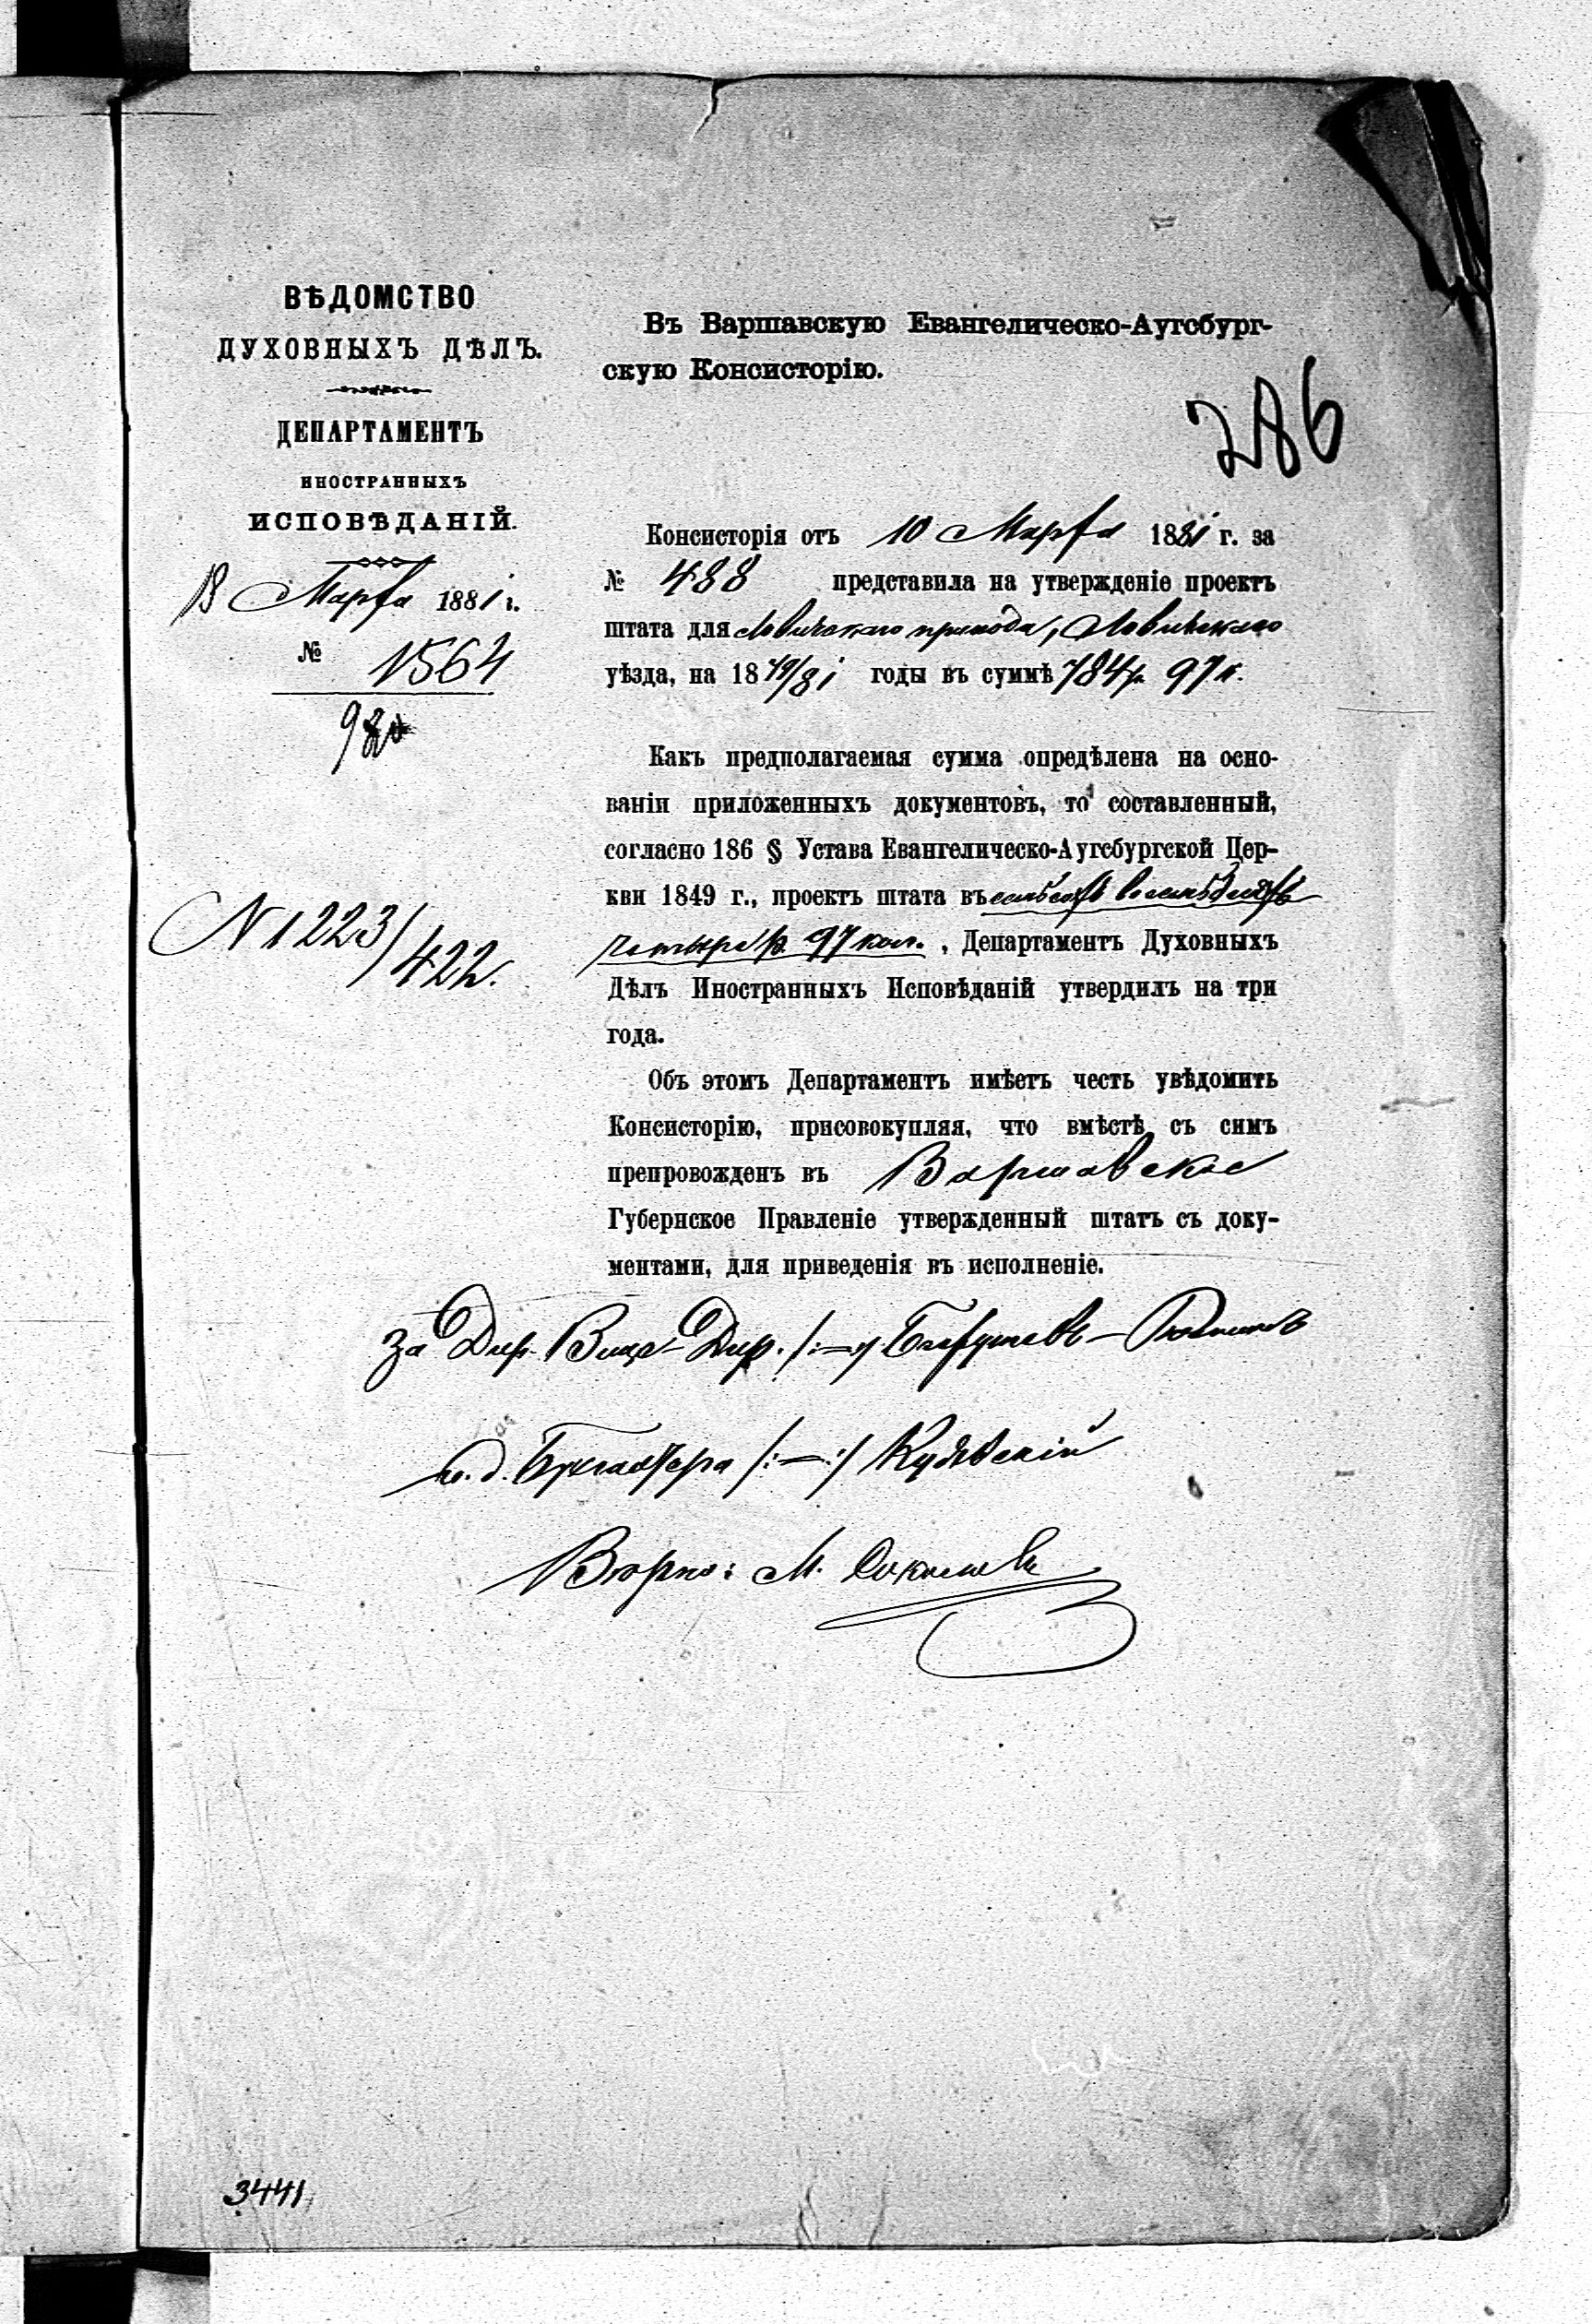 ВѢДОМСТВО
ДУХОВНЫХЪ ДѢЛЪ.
ДЕПАРТАМЕНТЪ
ИНОСТРАННЫХЪ
ИСПОВѢДАНІЙ.
Марта 1881 г.
№ 1564
N 1223/422.
Въ Варшавскую Евангелическо-Аугсбург-
скую Консисторію.
286
Консисторія отъ 10 Марта 1881 г. за
№ 488 представила на утвержденіе проектъ
штата для Ловичскаго прихода, Ловичскаго
уѣзда, на 1879/81 годы въ суммѣ 784 р. 97 к.
Какъ предполагаемая сумма опредѣлена на осно-
ваніи приложенныхъ документовъ, то составленный,
согласно 186 § Устава Евангелическо-Аугсбургской Цер-
кви 1849 г., проектъ штата въ семьсотъ восемьдесятъ
четыре р. 97 коп., Департаментъ Духовныхъ
Дѣлъ Иностранныхъ Исповѣданій утвердилъ на три
года.
Объ этомъ Департаментъ имѣетъ честь увѣдомить
Консисторію, присовокупляя, что вмѣстѣ съ симъ
препровожденъ въ Варшавское
Губернское Правленіе утвержденный штатъ съ доку-
ментами, для приведенія въ исполненіе.
За Дир. Вице-Дир. /:—:/
и. д. Бухгалтера /:—:/
Вѣрно: М. Соколовъ
3441